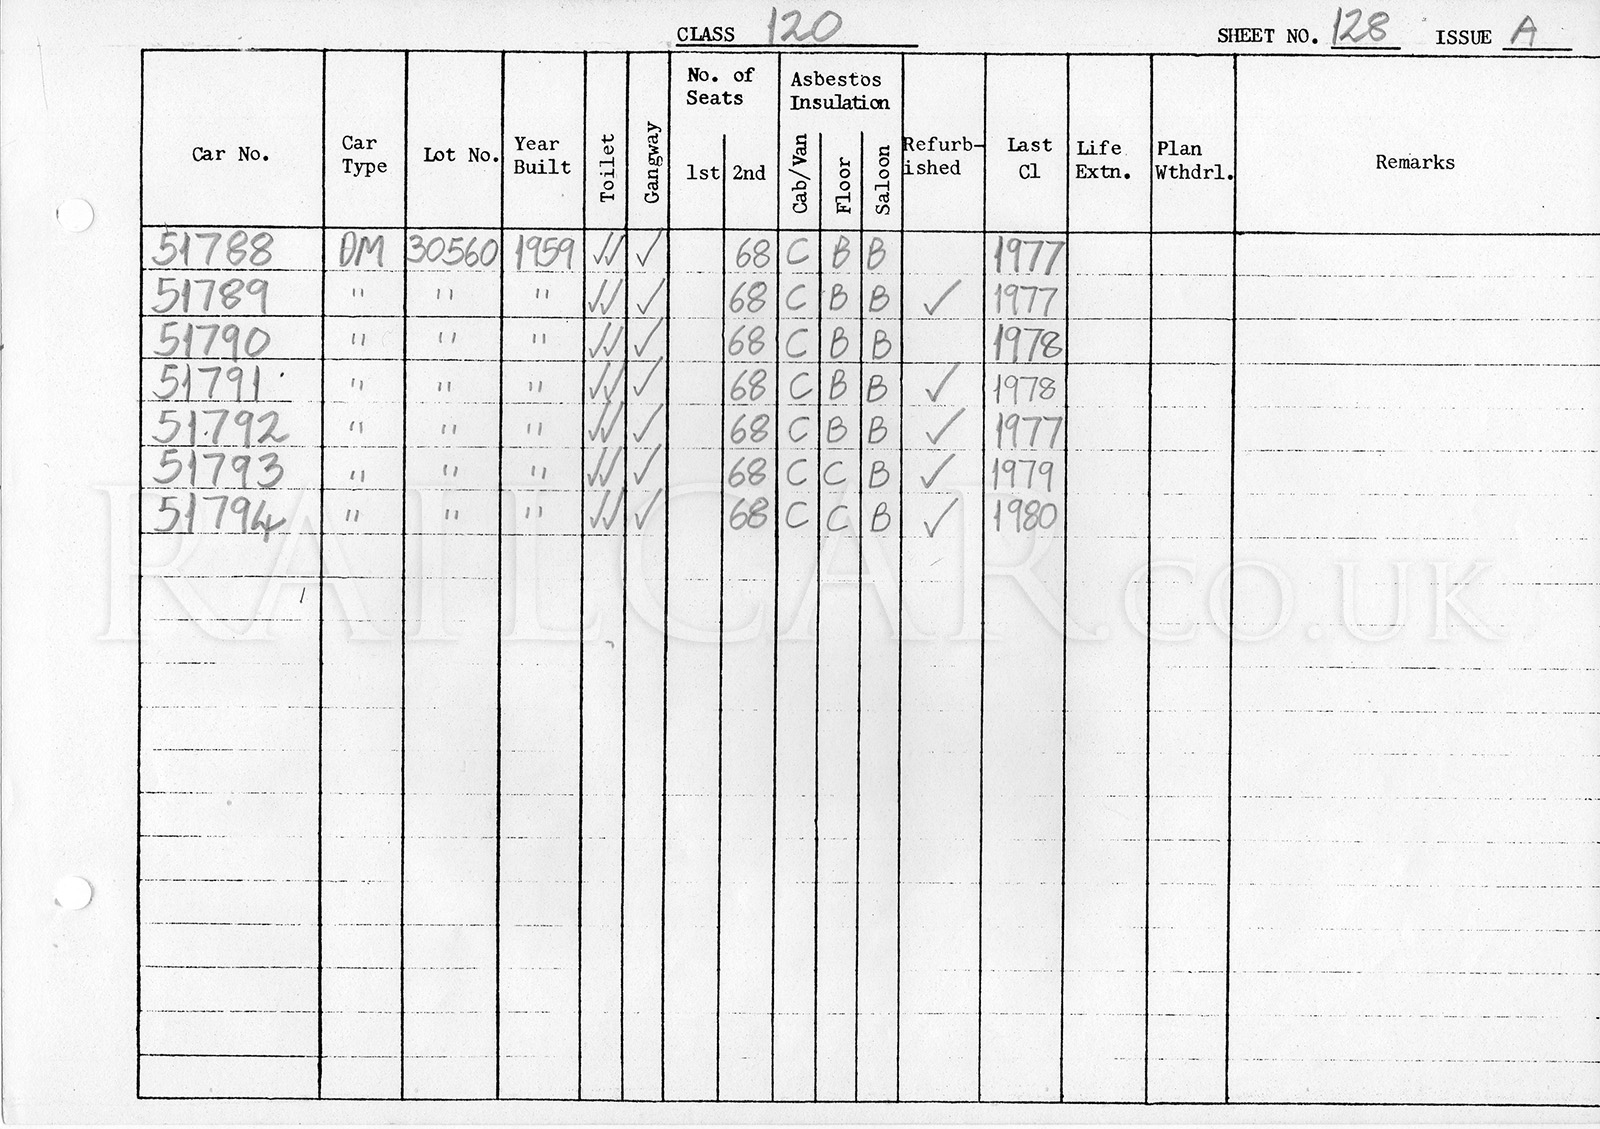 CLASS 120 SHEET NO. 128 ISSUE A
Car No. Car Type Lot No. Year Built Toilet Gangway No. of Seats 1st 2nd Asbestos Insulation Cab/Van Floor Saloon Refurb-ished Last Cl Life Extn. Plan Wthdrl. Remarks
51788 DM 30560 1959 ✓✓ ✓ 68 C B B 1977
51789 " " " ✓✓ ✓ 68 C B B ✓ 1977
51790 " " " ✓✓ ✓ 68 C B B 1978
51791 " " " ✓✓ ✓ 68 C B B ✓ 1978
51792 " " " ✓✓ ✓ 68 C B B ✓ 1977
51793 " " " ✓✓ ✓ 68 C C B ✓ 1979
51794 " " " ✓✓ ✓ 68 C C B ✓ 1980
RAILCAR.CO.UK